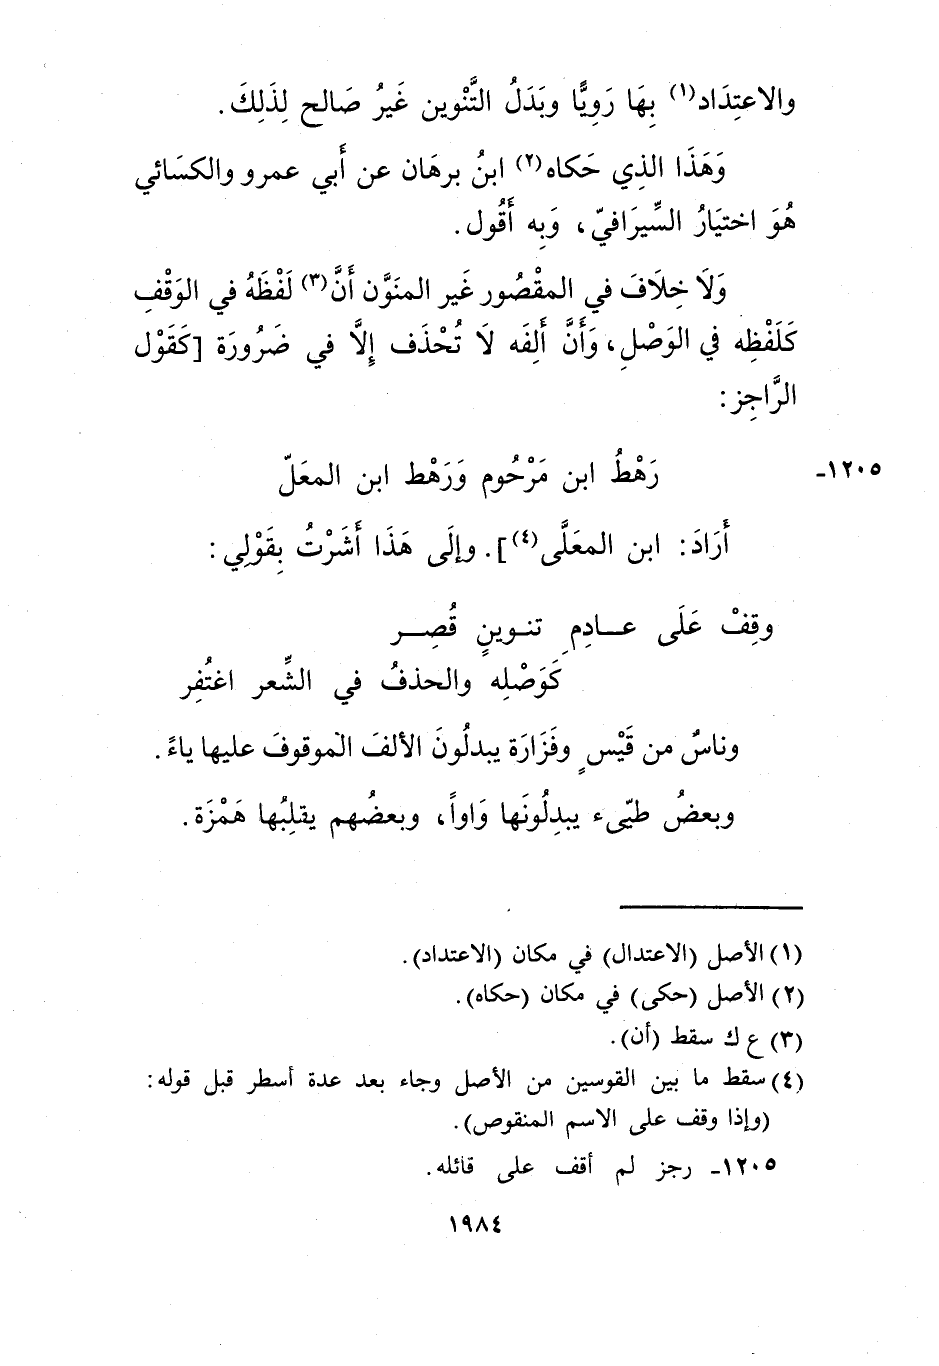 والاعتِدَاد(١) بِهَا رَوِيًّا وبَدَلُ التَّنْوين غَيرُ صَالح لِذَلِكَ.
وَهَذَا الذِي حَكاه(٢) ابنُ برهَان عن أَبي عمرو والكسَائي
هُوَ اختيَارُ السِّيرَافيّ، وَبِه أَقُول.
وَلَا خِلَافَ في المقْصُور غَير المنَوَّن أَنَّ(٣) لَفْظَهُ في الوَقْفِ
كَلَفْظِه في الوَصْلِ، وَأَنَّ أَلِفَه لَا تُحْذَف إِلَّا في ضَرُورَة [كَقَوْل
الرَّاجِز:
١٢٠٥- رَهْطُ ابن مَرْحُوم وَرَهْط ابن المعَلّ
أَرَادَ: ابن المعَلَّى(٤)]. وإلَى هَذَا أَشَرْتُ بِقَوْلِي:
وقِفْ عَلَى عـادِمِ تنـوينٍ قُصِـر
كَوَصْلِه والحذفُ في الشِّعر اغتُفِر
وناسٌ من قَيْسٍ وفَزَارَة يبدلُونَ الألفَ الموقوفَ عليها ياءً.
وبعضُ طيّىء يبدِلُونَها وَاواً، وبعضُهم يقلِبُها هَمْزَة.
(١) الأصل (الاعتدال) في مكان (الاعتداد).
(٢) الأصل (حكى) في مكان (حكاه).
(٣) ع ك سقط (أن).
(٤) سقط ما بين القوسين من الأصل وجاء بعد عدة أسطر قبل قوله:
(وإذا وقف على الاسم المنقوص).
١٢٠٥- رجز لم أقف على قائله.
١٩٨٤